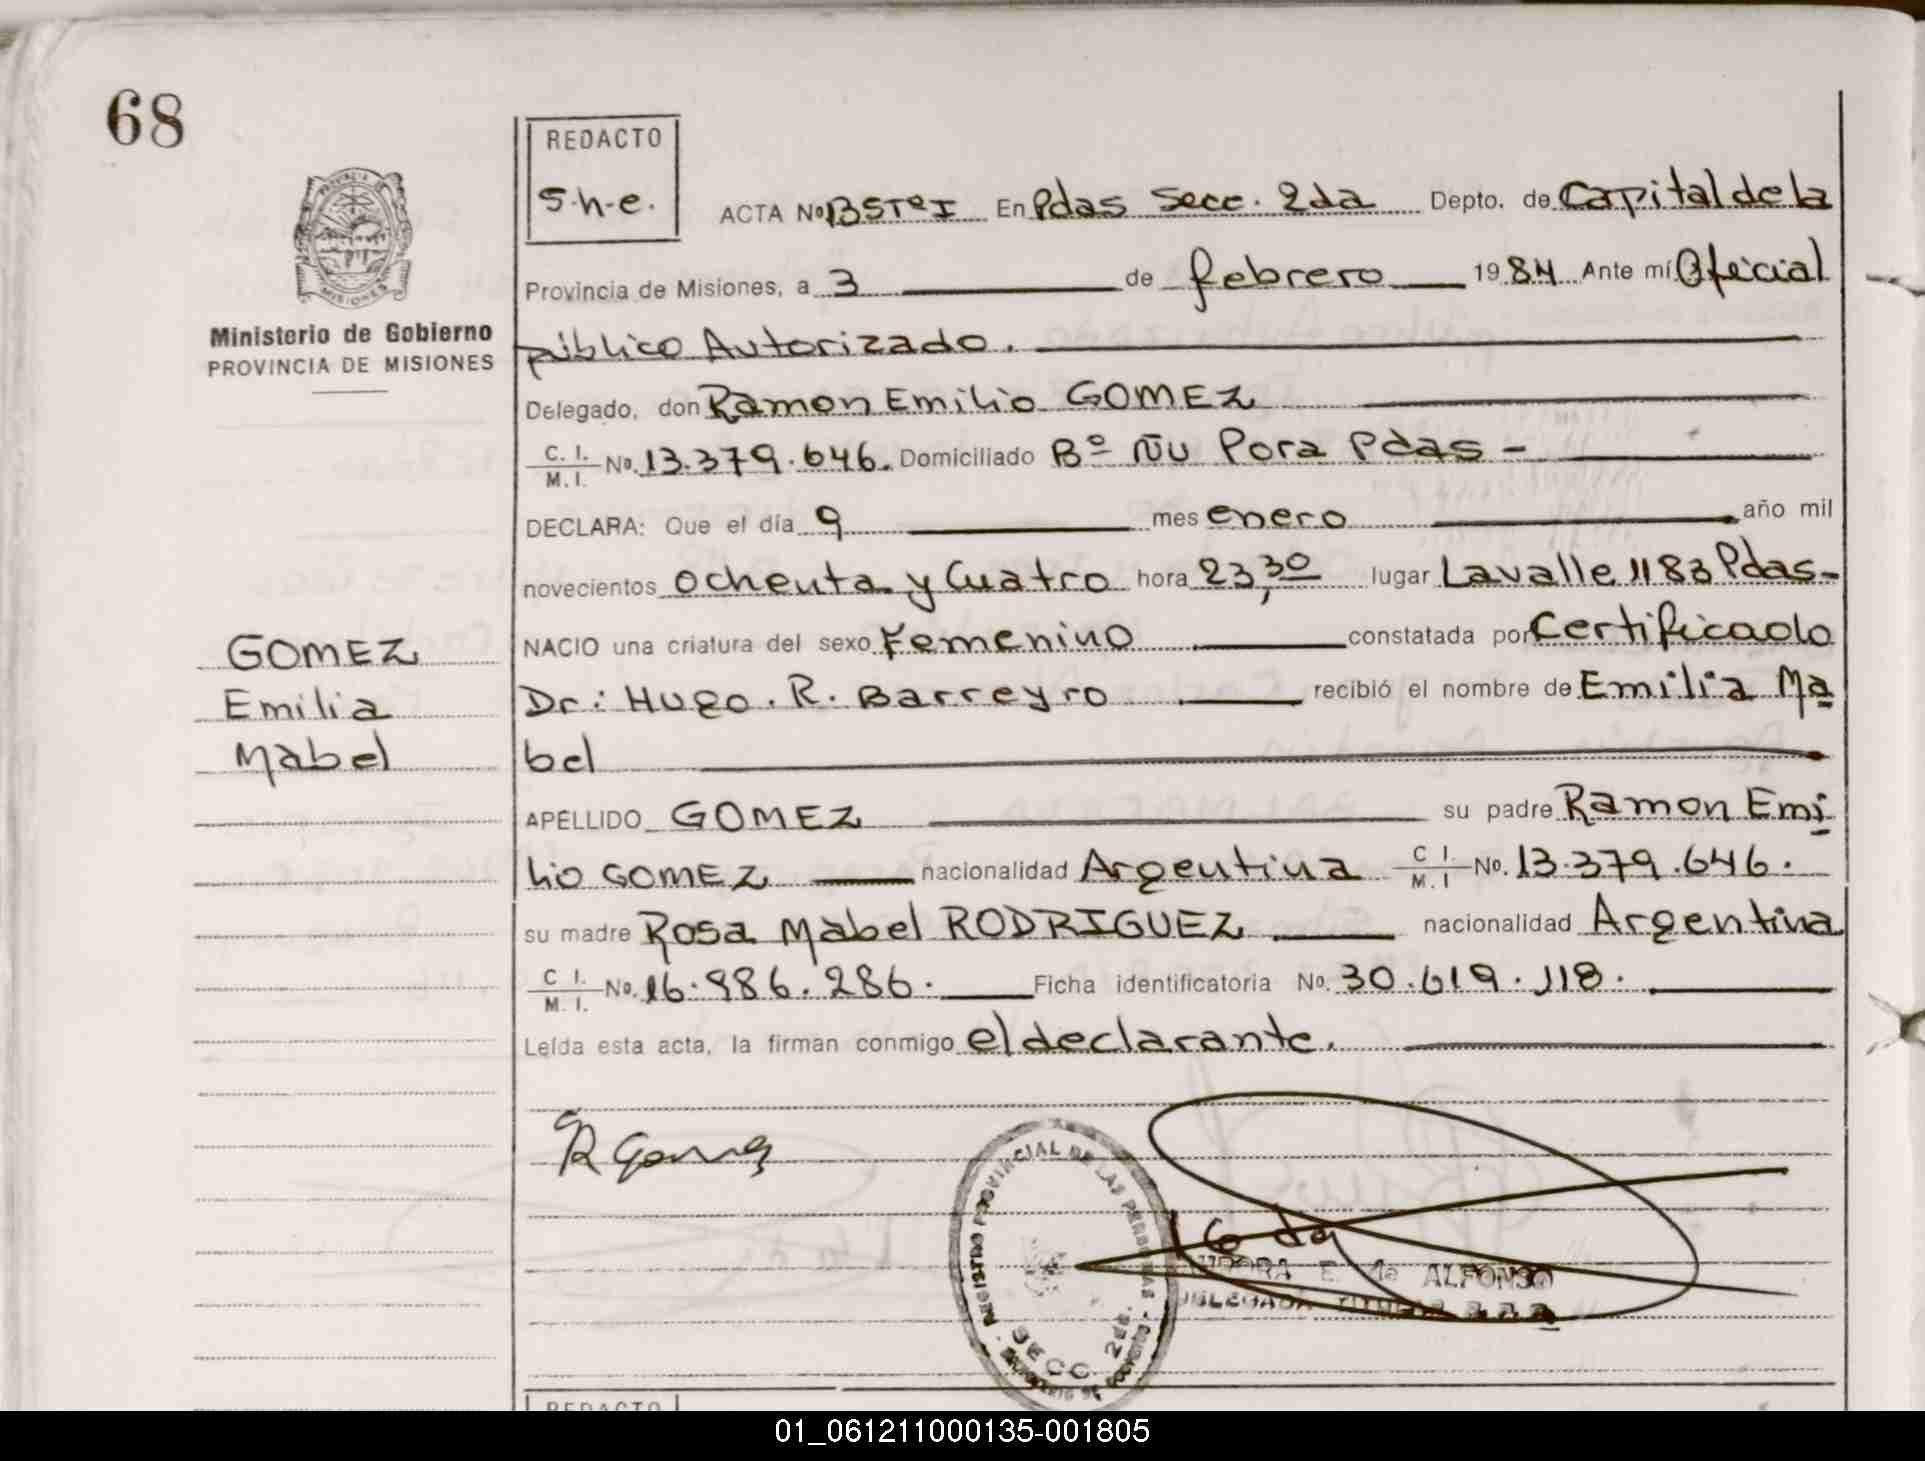 68
REDACTO
S-h-e.
ACTA No 135 Tº I En Pdas Secc. 2da Depto. de Capital de la
Provincia de Misiones, a 3 de febrero 1984 Ante mí Oficial
público Autorizado.
Ministerio de Gobierno
PROVINCIA DE MISIONES
Delegado, don Ramon Emilio GOMEZ
C. I. M. I. No. 13.379.646. Domiciliado Bº Ñu Pora Pdas -
DECLARA: Que el día 9 mes enero año mil
novecientos ochenta y Cuatro hora 23,30 lugar Lavalle 1183 Pdas-
NACIO una criatura del sexo Femenino constatada por Certificado
Dr: Hugo. R. Barreyro recibió el nombre de Emilia Ma
bel
GOMEZ
Emilia
Mabel
APELLIDO GOMEZ su padre Ramon Emi
lio GOMEZ nacionalidad Argentina C I. M. I No. 13.379.646.
su madre Rosa Mabel RODRIGUEZ nacionalidad Argentina
C I. M. I. No. 16.986.286. Ficha identificatoria No. 30.619.118.
Leída esta acta, la firman conmigo el declarante.
R Gomez
REGISTRO PROVINCIAL DE LAS PERSONAS
SECC. 2da.
E. ALFONSO
REDACTO
01_061211000135-001805